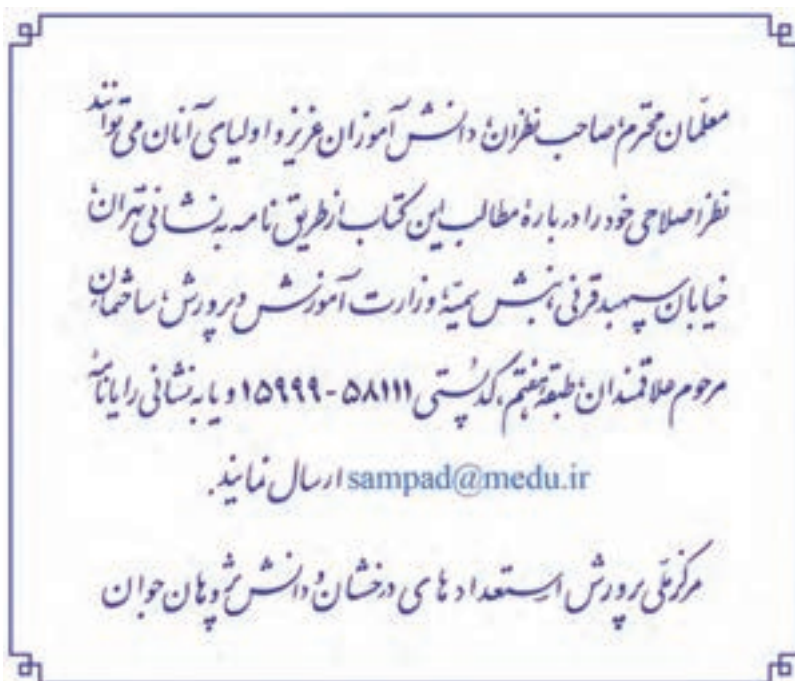 معلّمان محترم، صاحب نظران، دانش آموزان عزیز و اولیای آنان می توانند
نظر اصلاحی خود را دربارهٔ مطالب این کتاب از طریق نامه به نشانی تهران،
خیابان سپهبد قرنی، نبش سمیّه، وزارت آموزش و پرورش، ساختمان
مرحوم علاقمندان، طبقه هفتم، کدپستی ۵۸۱۱۱ - ۱۵۹۹۹ و یا به نشانی رایانامه
sampad@medu.ir ارسال نمایند.
مرکز ملّی پرورش استعدادهای درخشان و دانش پژوهان جوان